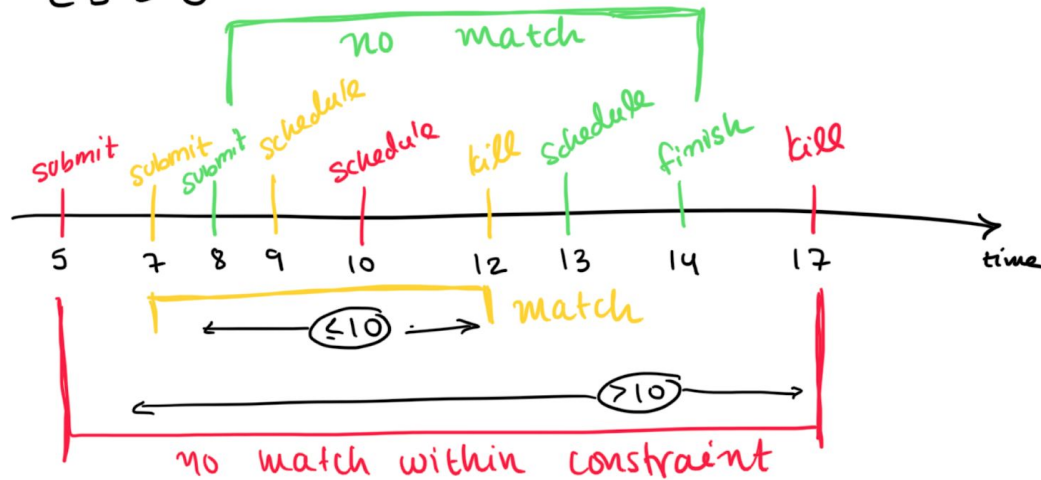 no match
submit submit submit schedule schedule kill schedule finish kill
5 7 8 9 10 12 13 14 17 time
match
≤10
>10
no match within constraint